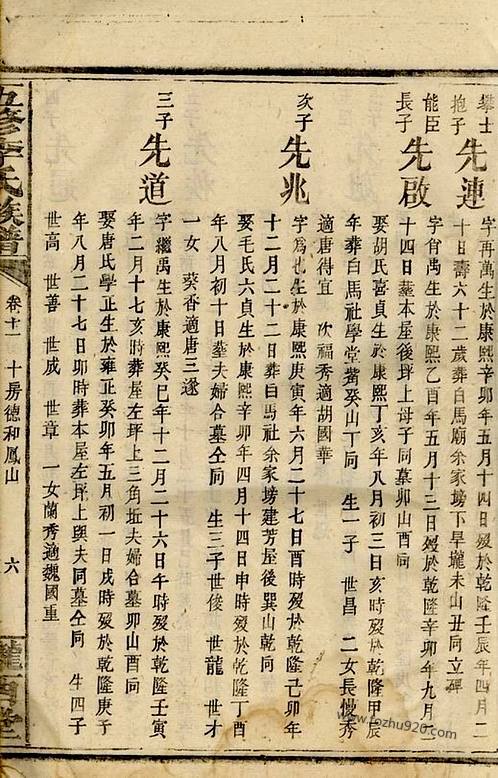 攀士
抱子 先連
字再萬生於康熙辛卯年五月十四日歿於乾隆壬辰年四月二
十日壽六十二歲葬白馬廟余家塝下旱壠未山丑向立碑
能臣
長子 先啟
字肖禹生於康熙乙酉年五月十三日歿於乾隆辛卯年九月二
十四日葬本屋後坪上母子同墓卯山酉向
娶胡氏喜貞生於康熙丁亥年八月初三日亥時歿於乾隆甲辰
年葬白馬社學堂嘴癸山丁向 生一子 世昌 二女長慢秀
適唐得宜 次福秀適胡國華
次子 先兆
字為也生於康熙庚寅年六月二十七日酉時歿於乾隆己卯年
十二月二十二日葬白馬社余家塝建芳屋後巽山乾向
娶毛氏六貞生於康熙辛卯年四月十四日申時歿於乾隆丁酉
年八月初十日葬夫婦合墓仝向 生三子世俊 世龍 世才
一女 葵香適唐三遂
三子 先道
字繼禹生於康熙癸巳年十二月二十六日午時歿於乾隆壬寅
年二月十七亥時葬屋左坪上三角坵夫婦合墓卯山酉向
娶唐氏學正生於雍正癸卯年五月初一日戌時歿於乾隆庚子
年八月二十七日卯時葬本屋左坪上與夫同墓仝向 生四子
世高 世善 世成 世章 一女蘭秀適魏國重
五修李氏族譜 卷十一 十房德和鳳山 六 隴西堂
www.fozhu920.com